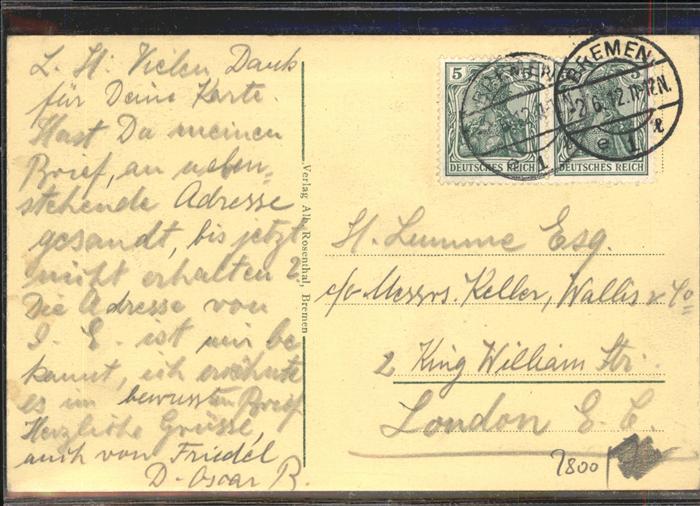 L. H. Vielen Dank
für Deine Karte.
Hast Du meinen
Brief, an neben-
stehende Adresse
gesandt, bis jetzt
nicht erhalten?
Die Adresse von
S. E. ist mir be
kannt, ich erwähnte
es im bewussten Brief
Herzliche Grüsse,
auch von Friedel
D. Oscar R.
Verlag Alb. Rosenthal, Bremen
5
DEUTSCHES REICH
5
DEUTSCHES REICH
BREMEN
BREMEN
-2.6.12.11-12N.
e 1
H. Lumme Esq.
c/o Messrs. Keller, Wallis & Co
2 King William Str.
London E. C.
2800